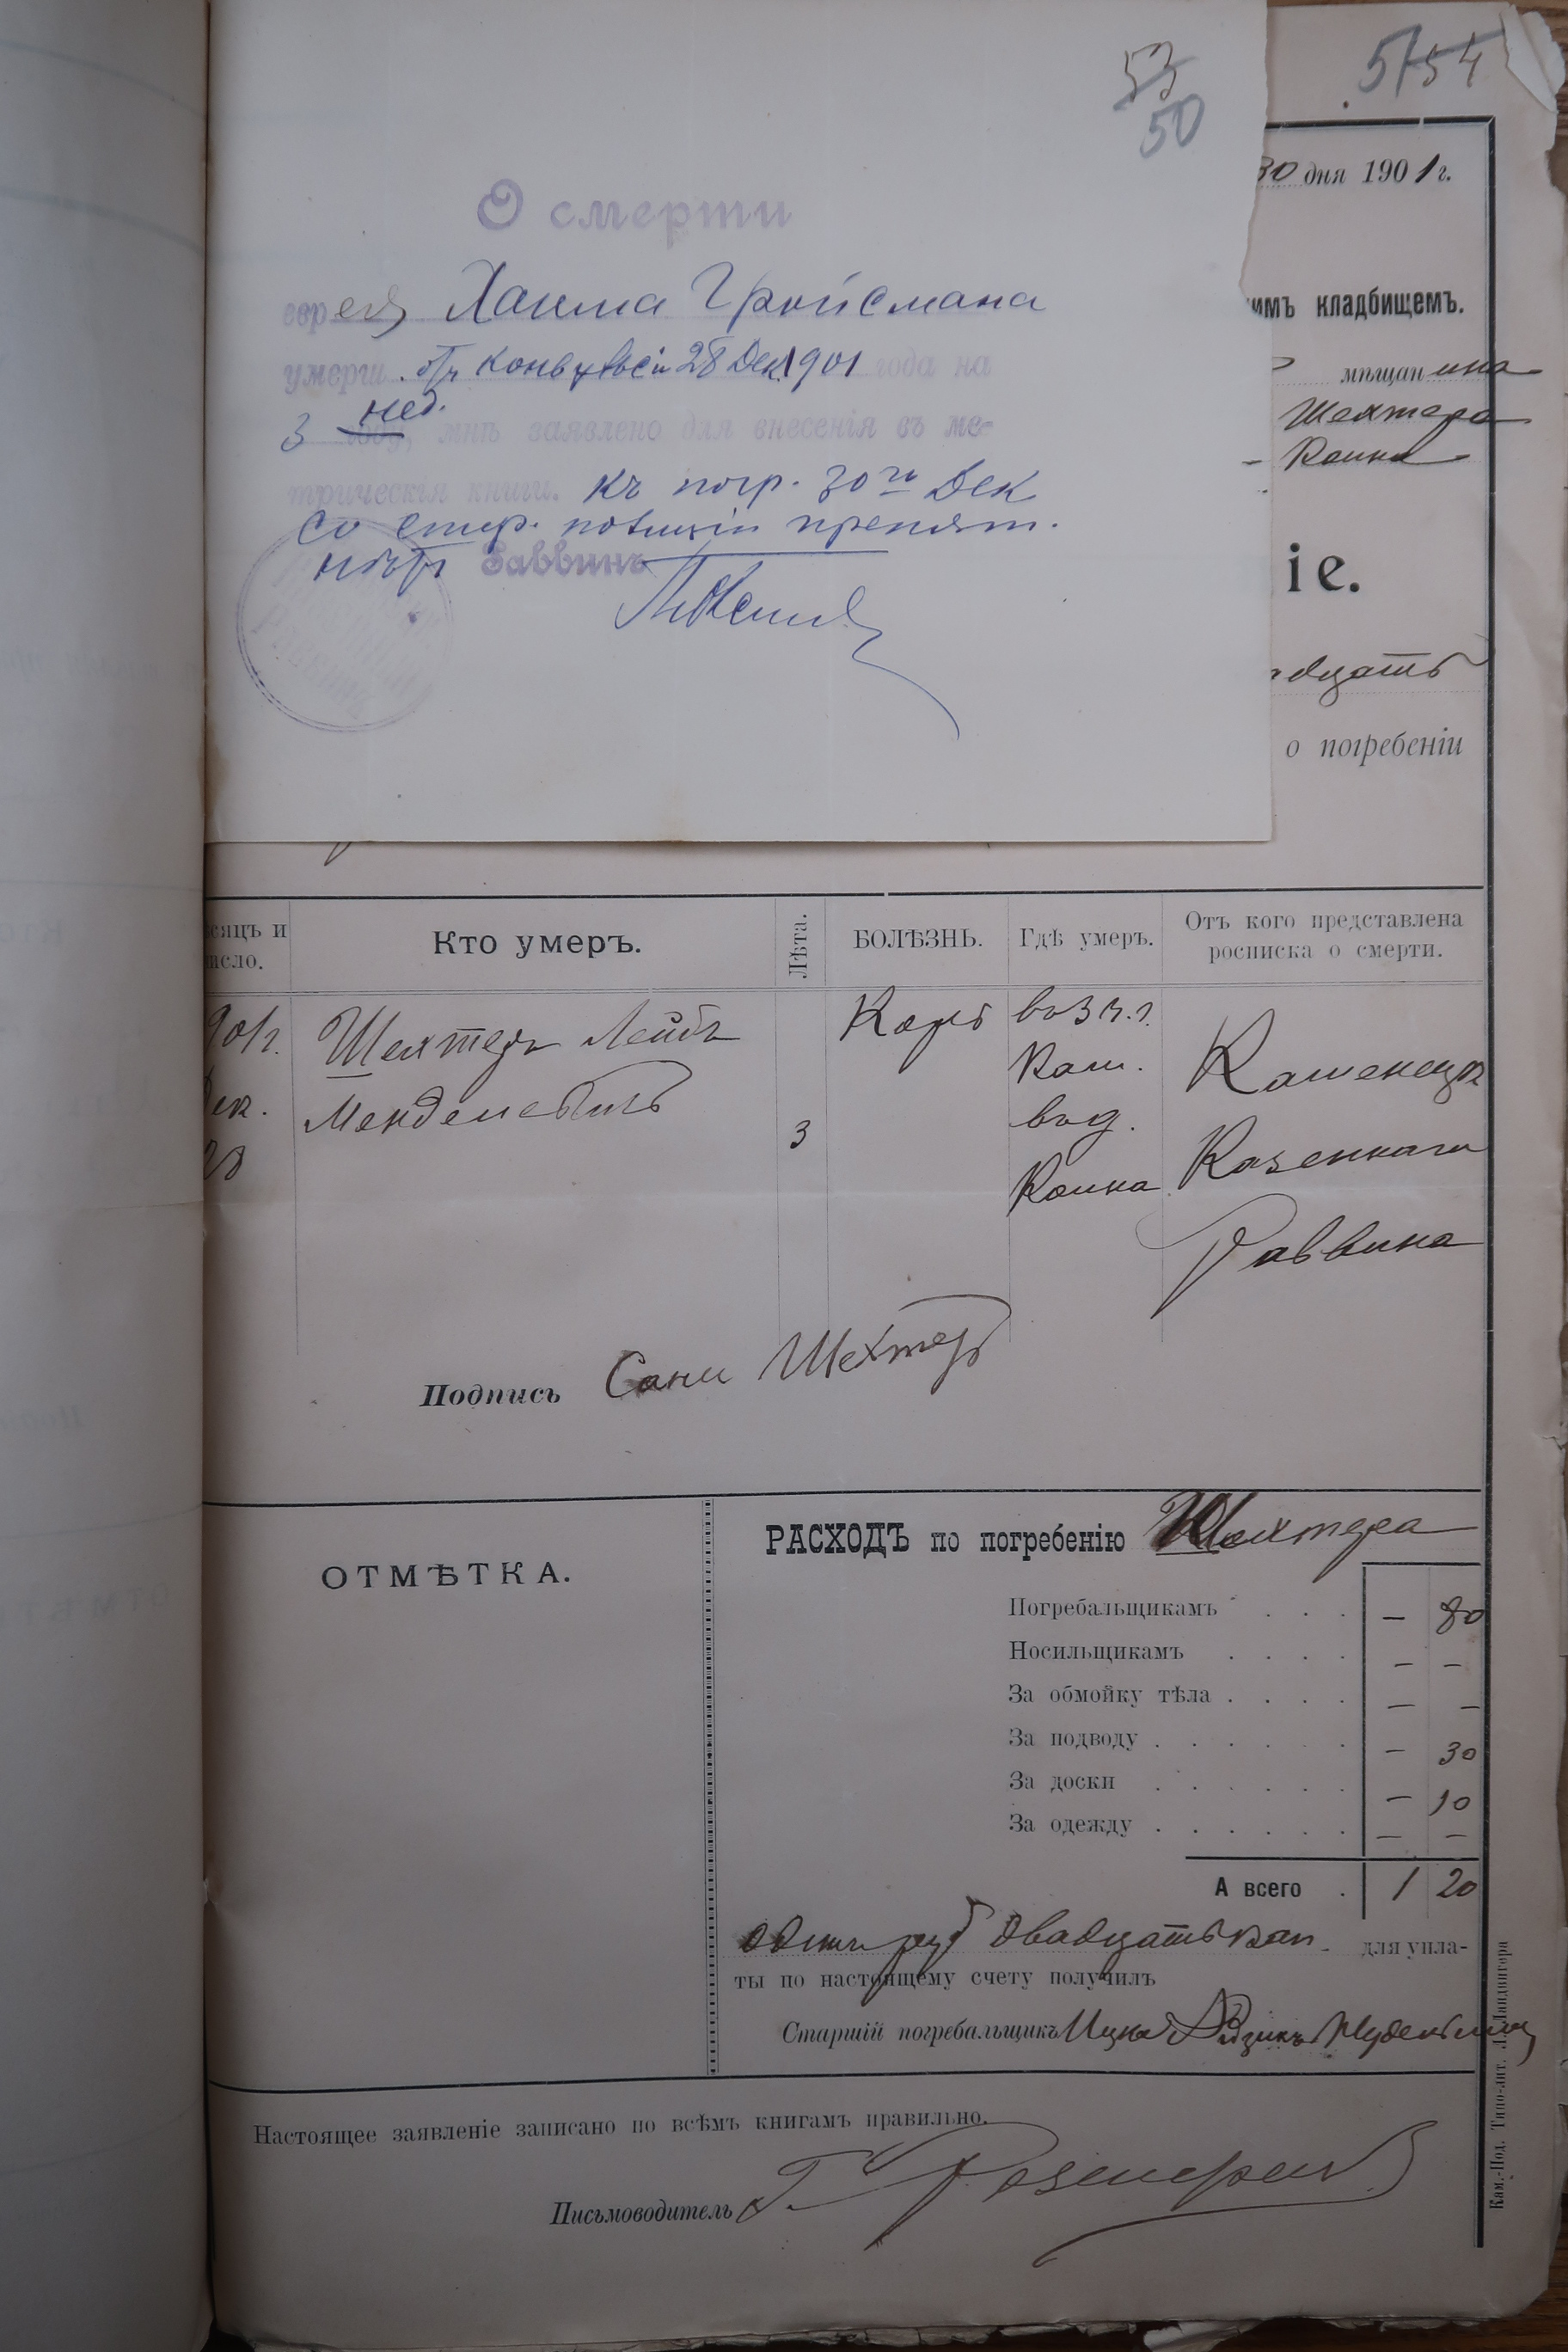 53
50
О смерти
еврея Хаима Гройсмана
умерш. отъ конвульсіи 28 Дек. 1901 года на
3 нед. году, мнѣ заявлено для внесенія въ ме-
трическія книги. Къ погр. 30го Дек
со стор. полиціи препят.
нѣтъ Раввинъ
5/54
30 дня 1901 г.
имъ кладбищемъ.
мѣщанина
Шехтера
іе.
адцать
о погребеніи
сяцъ и число.
Кто умеръ.
Лѣта.
БОЛѢЗНЬ.
Гдѣ умеръ.
Отъ кого представлена росписка о смерти.
901г.
Дек.
28
Шехтеръ Лейбъ
Менделевичъ
3
Корь
Кам.
Каменецк
Казеннаго
Раввина
Подпись Сани Шехтеръ
ОТМѢТКА.
РАСХОДЪ по погребенію Шехтера
Погребальщикамъ . . . — 80
Носильщикамъ . . . . — —
За обмойку тѣла . . . . — —
За подводу . . . . . . — 30
За доски . . . . . . — 10
За одежду . . . . . . — —
А всего . 1 20
один руб двадцать коп. для упла-
ты по настоящему счету получилъ
Старшій погребальщикъ Ицко
Настоящее заявленіе записано по всѣмъ книгамъ правильно.
Письмоводитель
Кам.-Под. Типо-лит. Л. Ландвигера